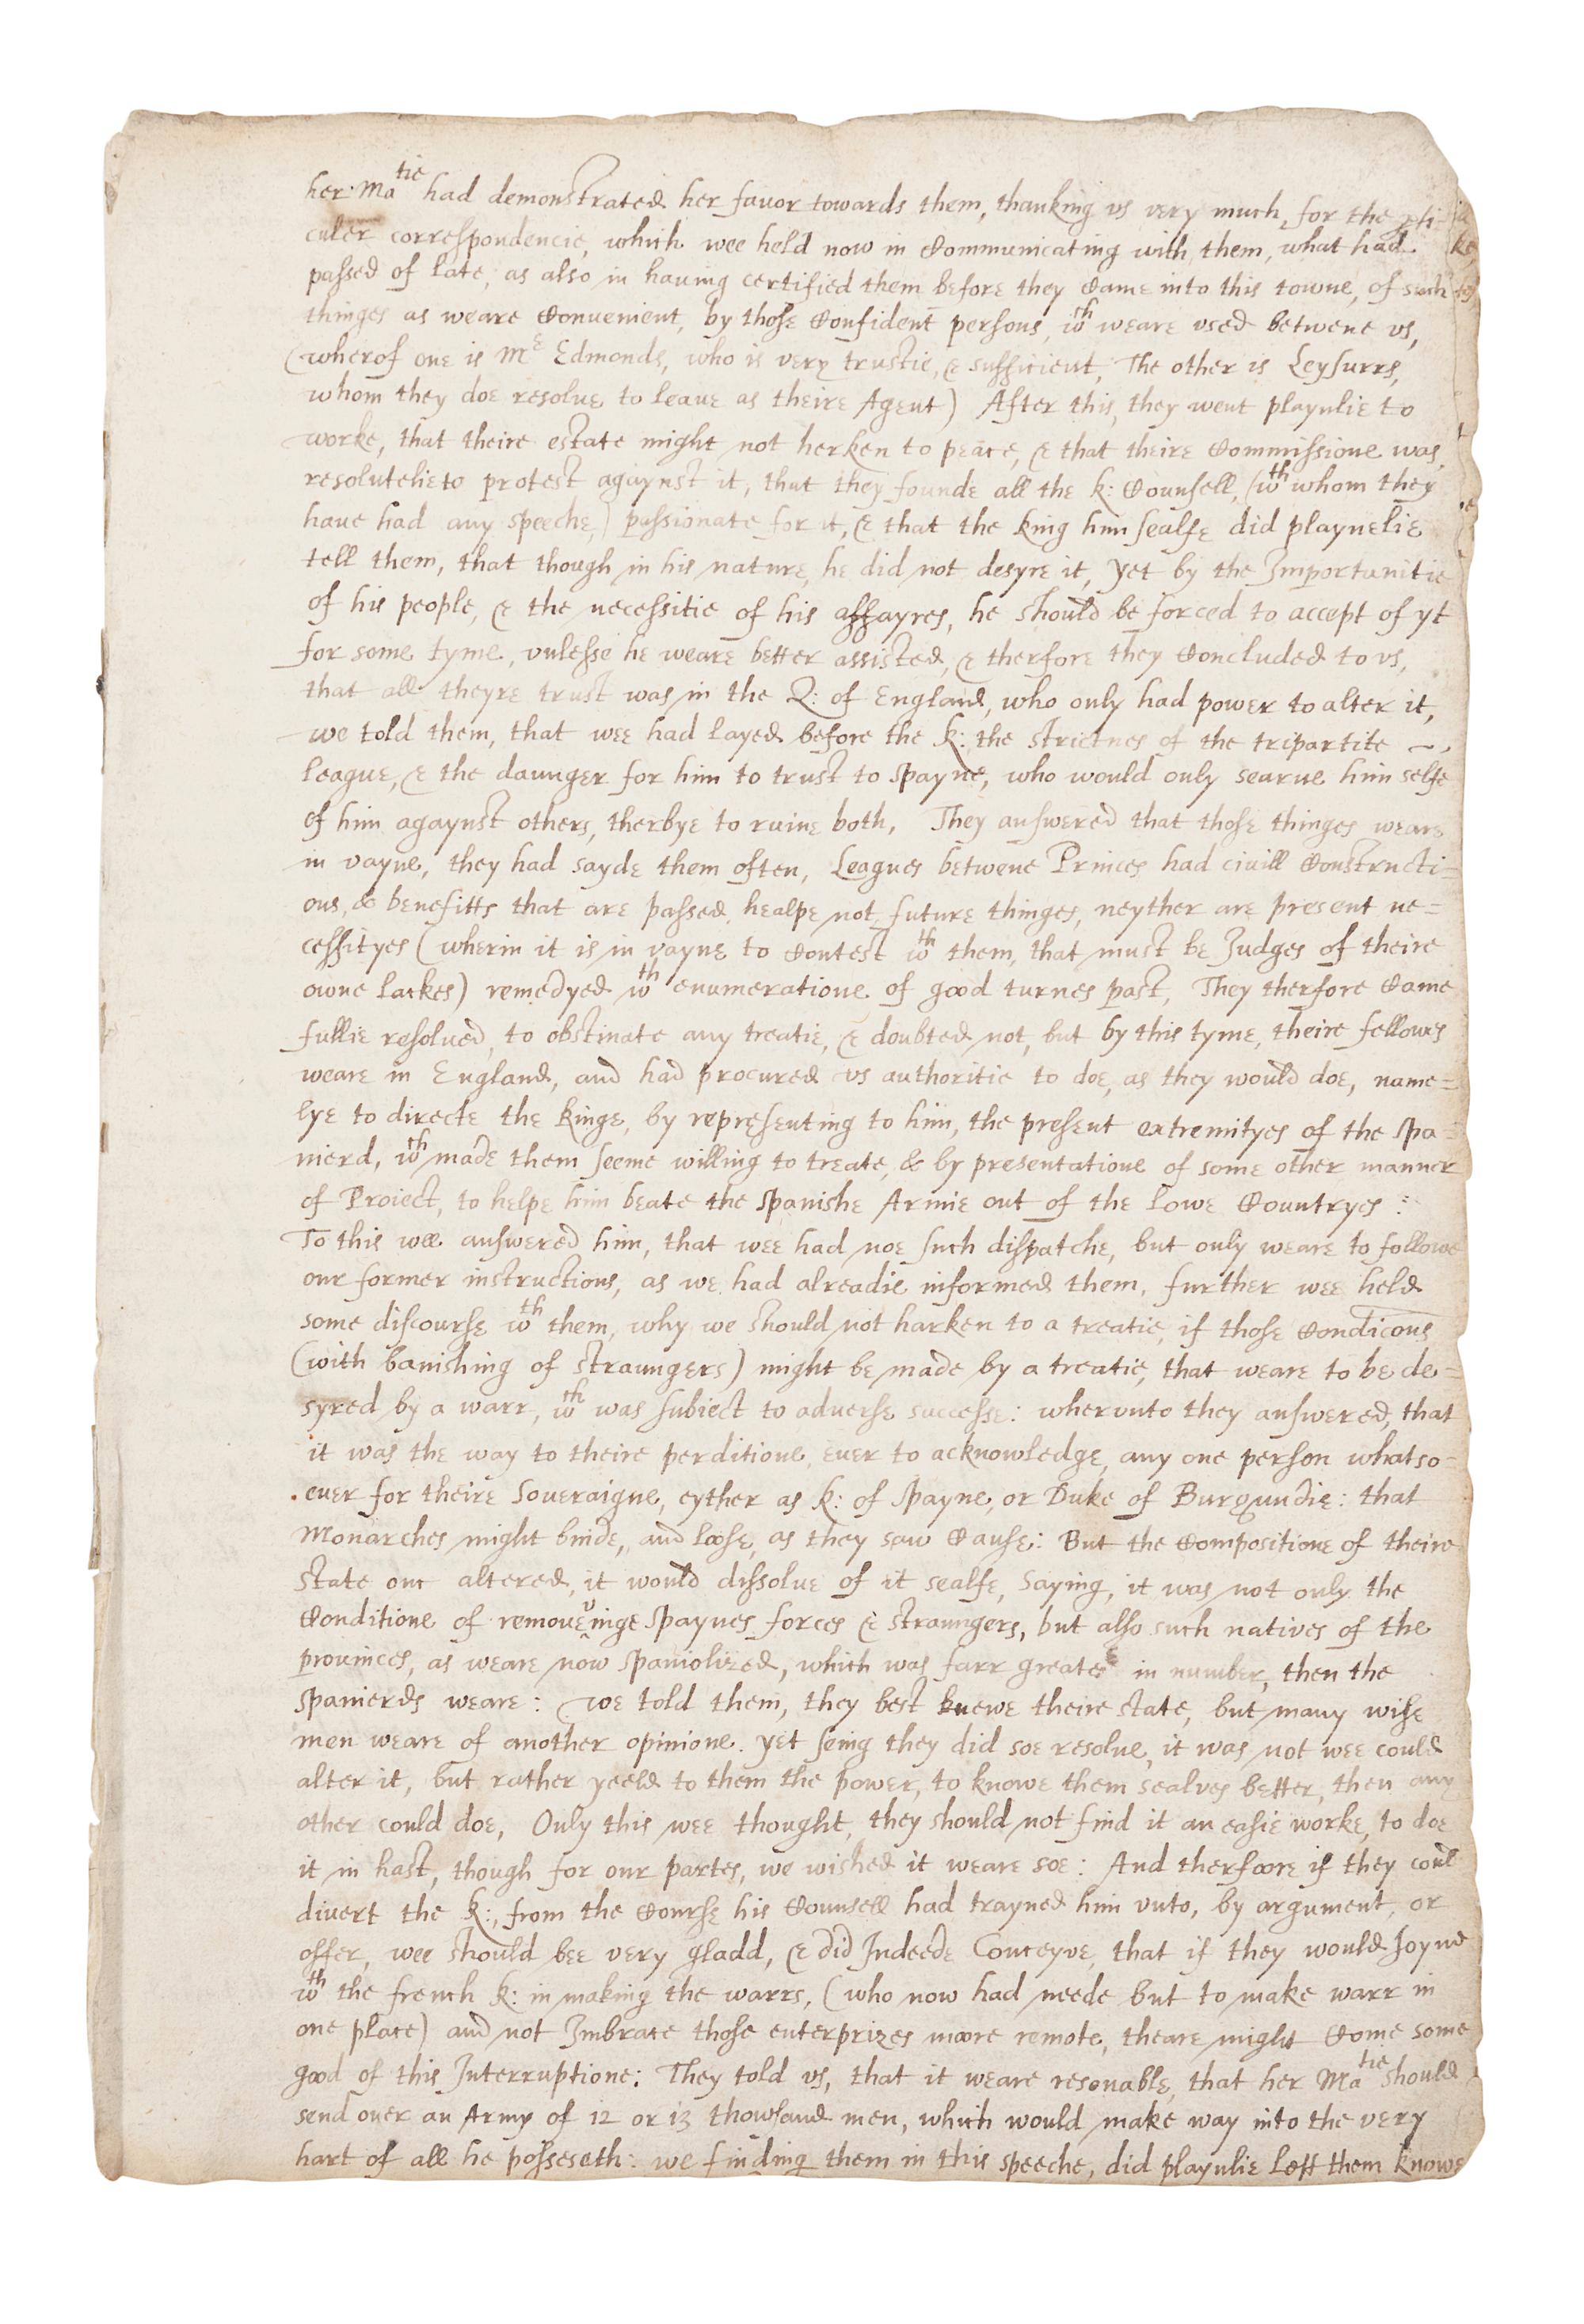 her Ma^tie had demonstrated her favor towards them, thanking vs very much, for the p̱ti-
culer correspondencie, which wee held now in Communicating with them, what had
passed of late, as also in hauing certified them before they Came into this towne, of such
thinges as weare Conuenient, by those Confident persons, w^th weare vsed betwene vs,
(wherof one is M^r Edmonds, who is very trustie, & sufficient, The other is Leysurrs,
whom they doe resolue to leaue as theire Agent) After this, they went playnlie to
worke, that theire estate might not herken to peace, & that theire Commissione was
resolutelie to protest agaynst it, that they founde all the k: Counsell, (w^th whom they
haue had any speeche,) passionate for it, & that the king him sealfe did playnelie
tell them, that though in his nature, he did not desyre it, yet by the Importunitie
of his people, & the necessitie of his affayres, he should be forced to accept of yt
for some tyme, vnlesse he weare better assisted, & therfore they Concluded to vs,
that all theyre trust was in the Q: of England, who only had power to alter it,
we told them, that wee had layed before the k: the strictnes of the tripartite ~
league, & the daunger for him to trust to Spayne, who would only searue him selfe
of him agaynst others, therbye to ruine both, They answered that those thinges weare
in vayne, they had sayde them often, Leagues betwene Princes had ciuill Constructi=
ons, & benefitts that are passed, healpe not future thinges, neyther are present ne=
cessityes (wherin it is in vayne to Contest w^th them, that must be Judges of theire
owne lackes) remedyed w^th enumeratione of good turnes past, They therfore Came
fullie resolued, to obstinate any treatie, & doubted not, but by this tyme, theire fellowes
weare in England, and had procured vs authoritie to doe, as they would doe, name=
lye to directe the kinge, by representing to him, the present extremityes of the Spa=
nierd, w^th made them seeme willing to treate, & by presentatione of some other manner
of Proiect, to helpe him beate the Spanishe Armie out of the Lowe Countryes :
To this wee answered him, that wee had noe such dispatche, but only weare to followe
our former instructions, as we had alreadie informed them, further wee held
some discourse w^th them, why we should not harken to a treatie, if those Condicons
(with banishing of straungers) might be made by a treatie, that weare to be de=
syred by a warr, w^th was subiect to aduerse successe: wherunto they answered, that
it was the way to theire perditione, euer to acknowledge, any one person whatso=
euer for theire Soueraigne, eyther as k: of Spayne, or Duke of Burgundie: that
Monarches might binde, and loose, as they saw Cause: But the Compositione of theire
state onc altered, it would dissolue of it sealfe, Saying, it was not only the
Conditione of remoueinge Spaynes forces & straungers, but also such natives of the
prouinces, as weare now Spaniolized, which was farr greater in number, then the
Spanierds weare: we told them, they best knewe theire state, but many wise
men weare of another opinione. yet seing they did soe resolue, it was not wee could
alter it, but rather yeeld to them the power, to knowe them sealves better, then any
other could doe, Only this wee thought, they should not find it an easie worke, to doe
it in hast, though for our partes, we wished it weare soe: And therfoore if they could
divert the k:, from the Course his Counsell had trayned him vnto, by argument, or
offer, wee should bee very gladd, & did Indeede Conceyve, that if they would Joyne
w^th the french k: in making the warrs, (who now had neede but to make warr in
one place) and not Imbrace those enterprizes moore remote, theare might Come some
good of this Interruptione: They told vs, that it weare resonable, that her Ma^tie should
send ouer an Army of 12 or 13 thowsand men, which would make way into the very
hart of all he posseseth: we finding them in this speeche, did playnlie lett them knowe